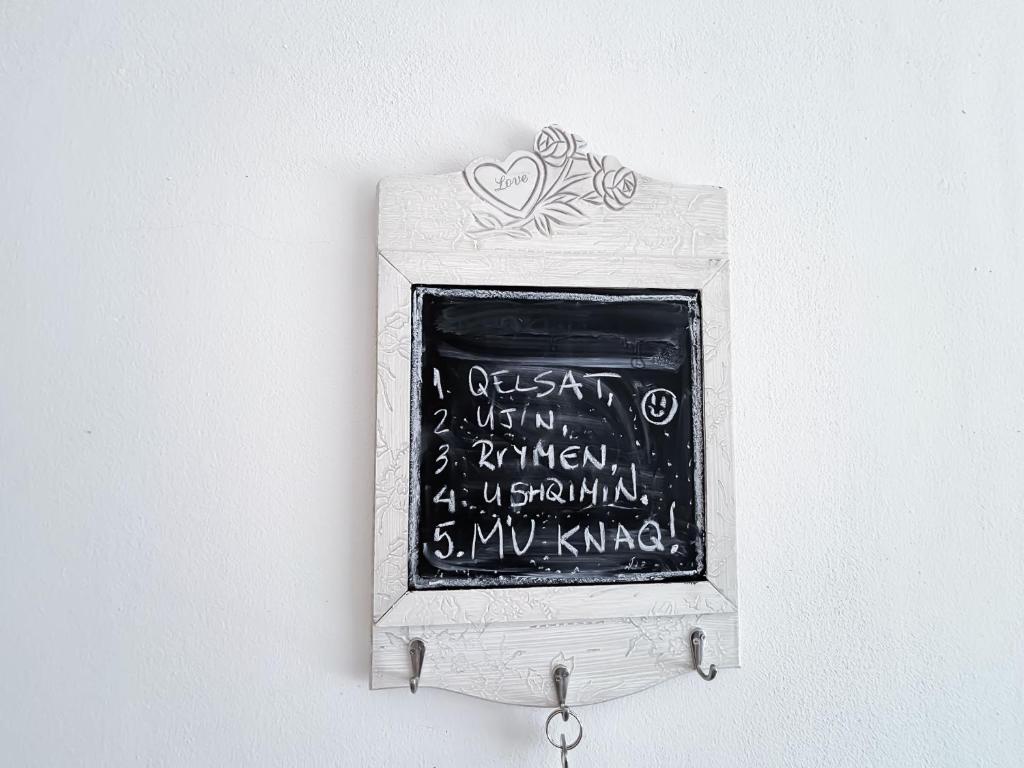 Love
1. QELSAT,
2 UJIN,
3. RrYMEN,
4. USHQIMIN.
5. MU KNAQ!